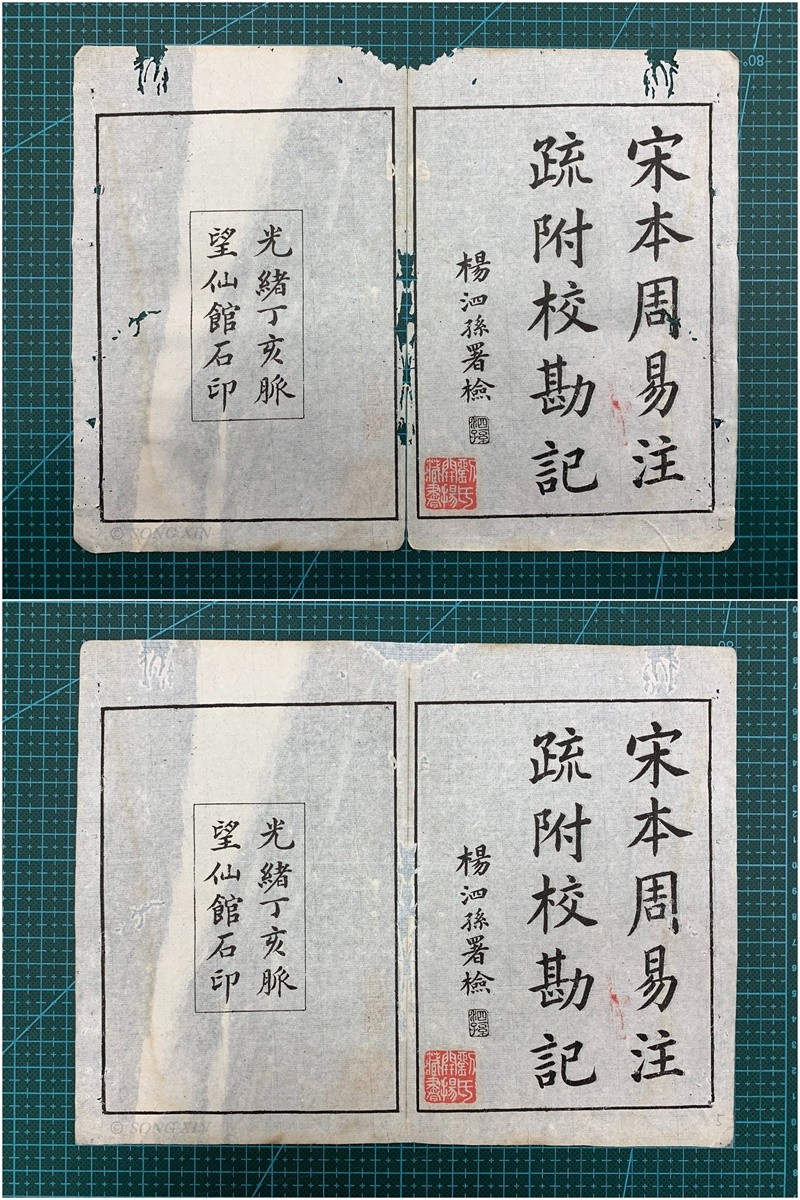 宋本周易注
疏附校勘記
楊泗孫署檢
泗孫
劉氏
開揚
藏書
光緒丁亥脈
望仙館石印
© SONG XIN
80°
5
宋本周易注
疏附校勘記
楊泗孫署檢
泗孫
劉氏
開揚
藏書
光緒丁亥脈
望仙館石印
© SONG XIN
5